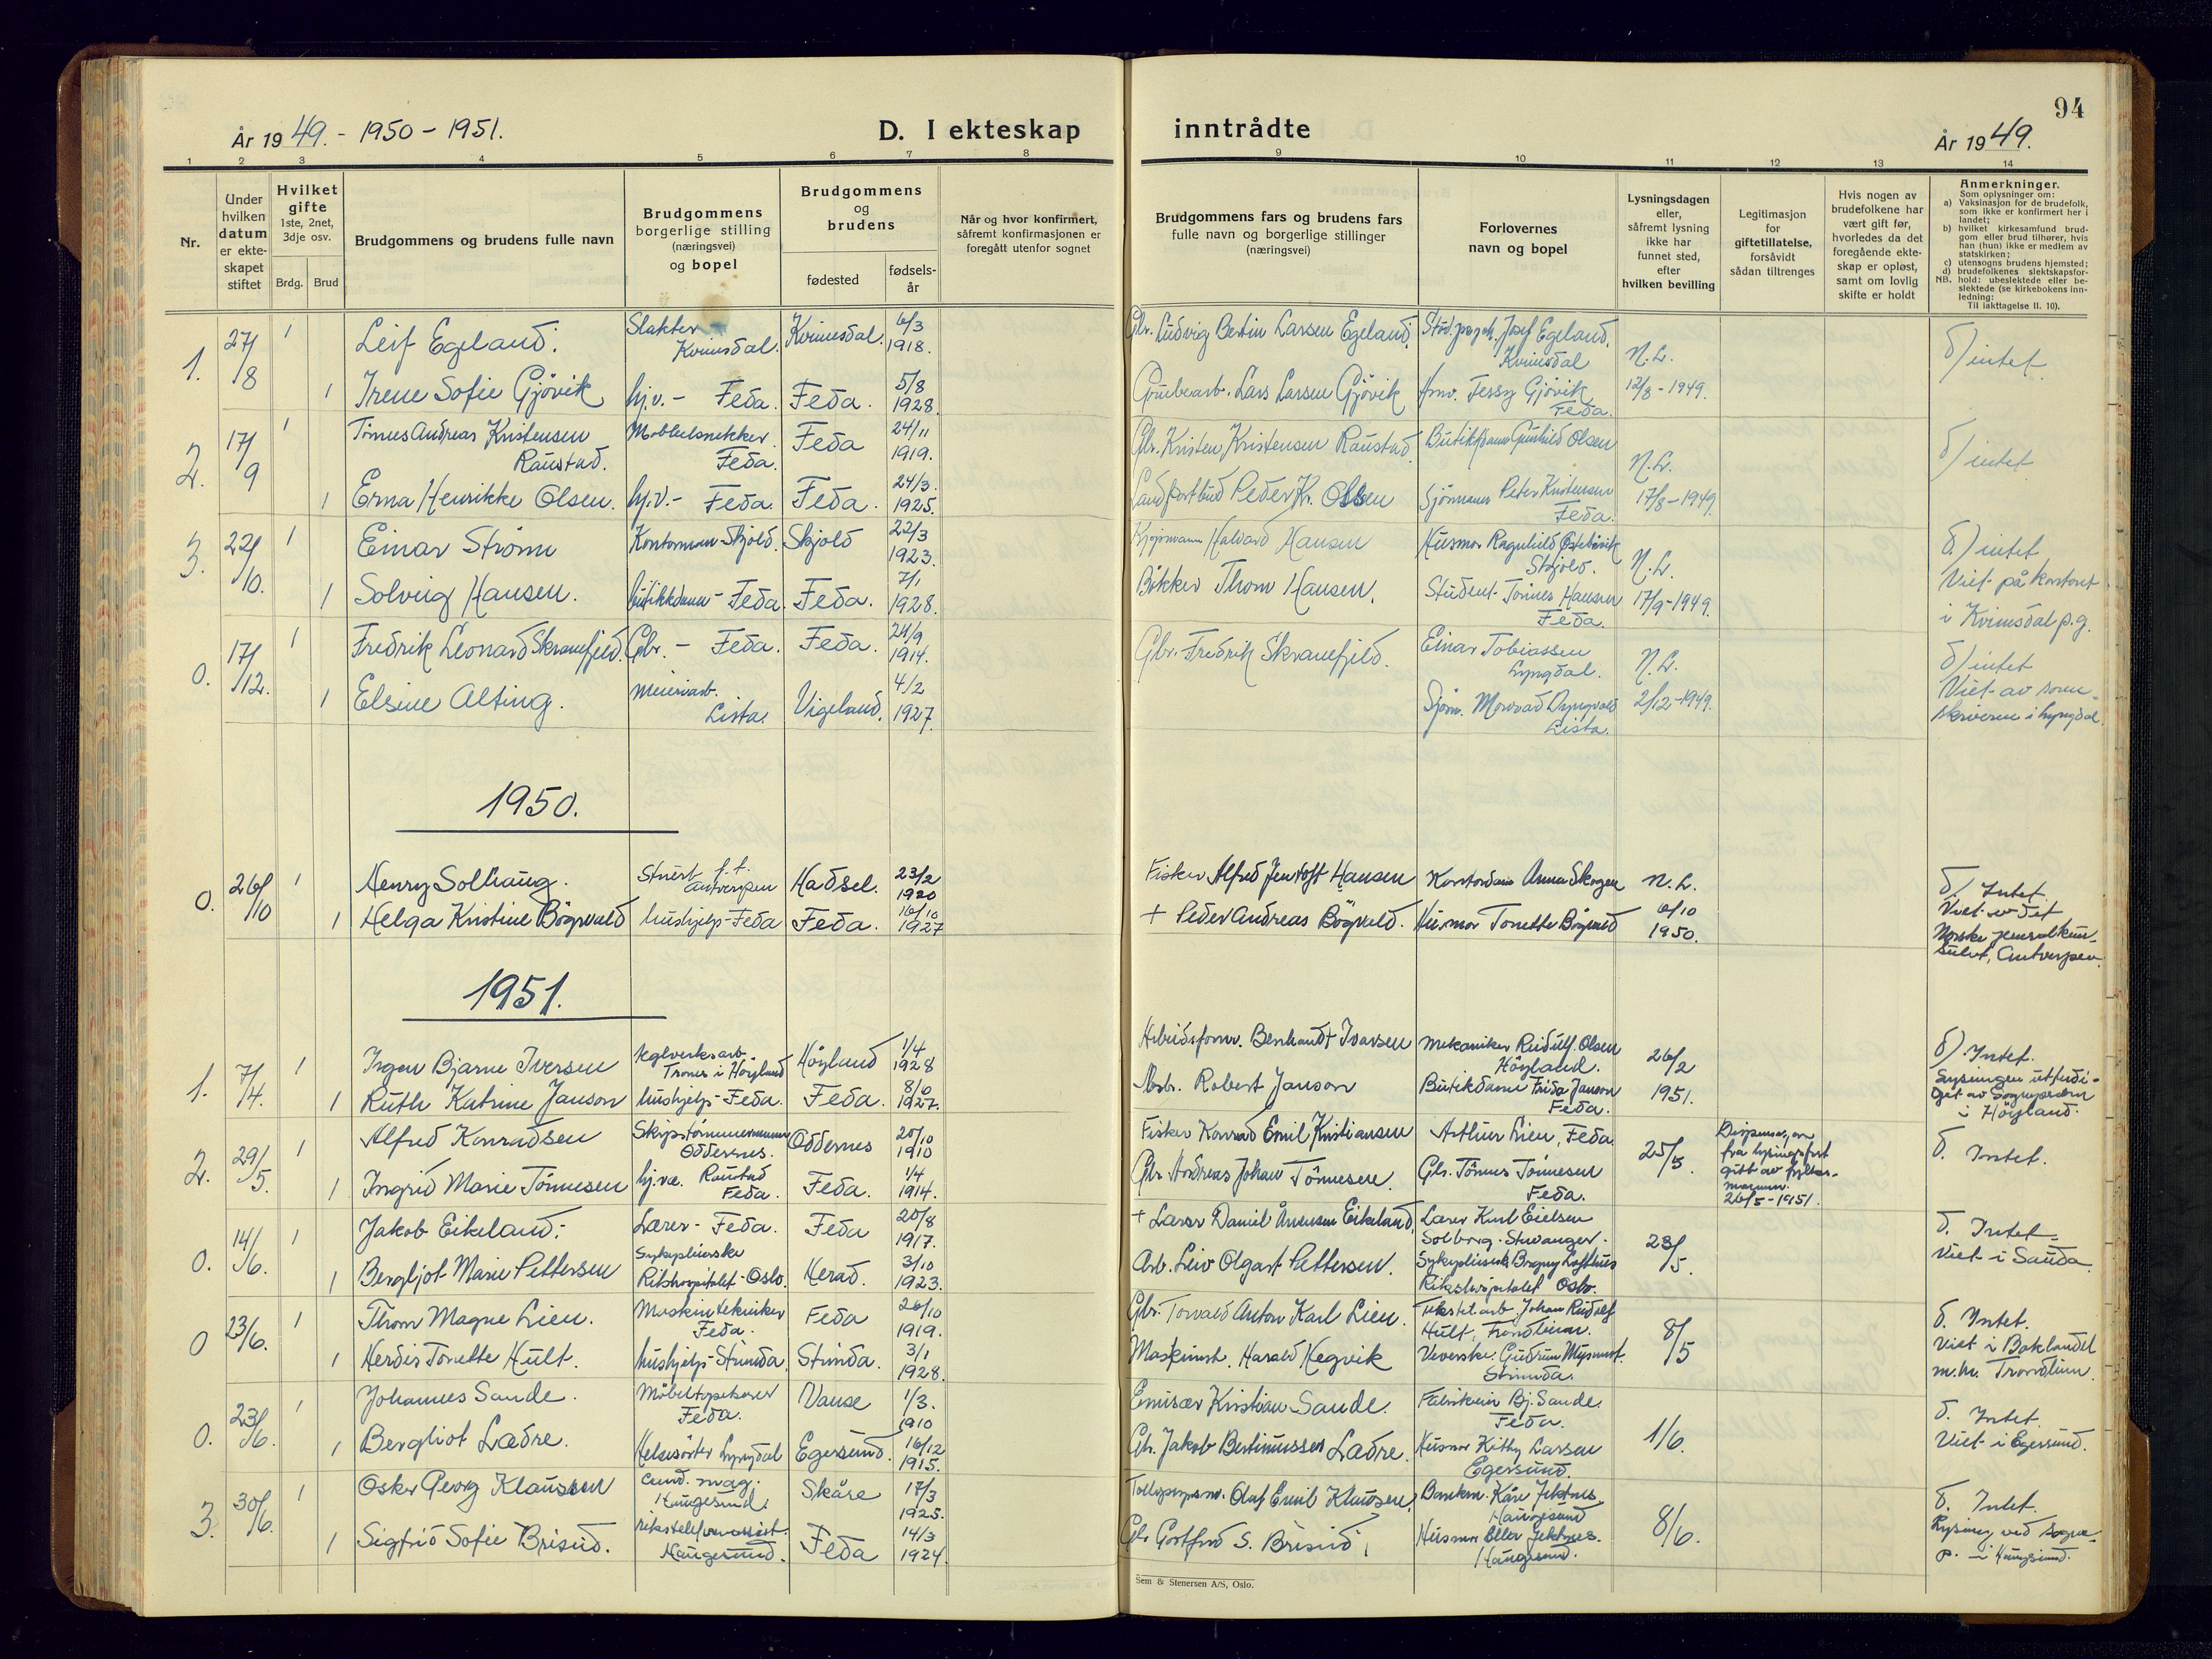 94
År 1949. - 1950 - 1951.
D. I ekteskap inntrådte
År 1949.
1 2 3 4 5 6 7 8 9 10 11 12 13 14
Nr.
Under hvilken datum er ekte-skapet stiftet
Hvilket gifte 1ste, 2net, 3dje osv.
Brdg. Brud
Brudgommens og brudens fulle navn
Brudgommens borgerlige stilling (næringsvei) og bopel
Brudgommens og brudens
fødested
fødsels-år
Når og hvor konfirmert, såfremt konfirmasjonen er foregått utenfor sognet
Brudgommens fars og brudens fars fulle navn og borgerlige stillinger (næringsvei)
Forlovernes navn og bopel
Lysningsdagen eller, såfremt lysning ikke har funnet sted, efter hvilken bevilling
Legitimasjon for giftetillatelse, forsåvidt sådan tiltrenges
Hvis nogen av brudefolkene har vært gift før, hvorledes da det foregående ekte-skap er opløst, samt om lovlig skifte er holdt
Anmerkninger.
Som oplysninger om:
a) Vaksinasjon for de brudefolk, som ikke er konfirmert her i landet;
b) hvilket kirkesamfund brud-gom eller brud tilhører, hvis han (hun) ikke er medlem av statskirken;
c) utensogns brudens hjemsted;
d) brudefolkenes slektskapsfor-hold: ubeslektede eller be-slektede (se kirkebokens inn-ledning:
NB. Til iakttagelse II. 10).
1. 27/8 1 Leif Egeland. Slakter Kvinesdal. Kvinesdal. 6/3 1918. Gbr. Ludvig Bertin Larsen Egeland. Josef Egeland, Kvinesdal N.L. 12/8-1949. d) intet
1 Irene Sofie Gjövik hj.v. - Feda. Feda. 5/8 1928. Lars Larsen Gjövik Gjövik Feda.
2. 17/9 1 Tönnes Andreas Kristensen Raustad. Möbelsnekker Feda. Feda 24/11 1919. Gbr. Kristen Kristensen Raustad. Gunhild Olsen N.L. 17/8-1949. d) intet
1 Erna Henrikke Olsen. hj.v. - Feda. Feda. 24/3 1925. Landpostbud Peder Kr. Olsen Sjömann Peter Kristensen Feda.
3. 22/10. 1 Einar Ström Kontorman Skjold. Skjold 22/3 1923. Halvard Hansen Husmor Ragnhild Skjold. N.L. 17/9-1949. d.) intet
Viet på kontoret i Kvinesdal p.g.
1 Solveig Hansen. butikkdame - Feda. Feda. 7/1 1928. Bökker Thom Hansen. Student Tönnes Hansen Feda.
0. 17/12. 1 Fredrik Leonard Skranefjeld. Gbr. - Feda. Feda. 24/9 1914. Gbr. Fredrik Skranefjeld. Einar Tobiassen Lyngdal. N.L. 2/12-1949. d) intet
Viet av soren-skriveren i Lyngdal.
1 Elsine Alting. Meieriarb. Lista. Vigeland. 4/2 1927. Sjöm. Lista.
1950.
0. 26/10 1 Henry Solhaug. Stuert f.t. Antverpen Hadsel. 23/2 1920 Fisker Alfred Jentoft Hansen Kontordame Anna Skogen N.L. 6/10 1950. d. Intet.
Viet av det Norske generalkon-sulat, Antverpen.
1 Helga Kristine Bögvald hushjelp - Feda Feda. 16/10 1927 + Peder Andreas Bögvald. Husmor Tonette Bögvald
1951.
1. 7/4. 1 Ingvar Bjarne Iversen Teglverksarb. Trones i Höyland Höyland 1/4 1928 Arbeidsformr. Iversen Mekaniker Reidulf Olsen Höyland. 26/2 1951. d) Intet.
Lysningen utferdi-get av Sognepresten i Höyland.
1 Ruth Katrine Janson hushjelp - Feda. Feda. 8/10 1927. Arb. Robert Janson Butikdame Frida Janson Feda.
2. 29/5. 1 Alfred Konradsen Skipstömmermann Oddernes. Oddernes 25/10 1910 Fisker Konrad Emil Kristiansen Arthur Lien, Feda 25/5. Dispensasjon fra lysingsfrist gitt av fylkes-mannen. 26/5-1951. d. Intet.
1 Ingrid Marie Tönnesen hj.v. Raustad Feda. Feda. 1/4 1914. Gbr. Andreas Johan Tönnesen. Gbr. Tönnes Tönnesen Feda.
0. 14/6. 1 Jakob Eikeland. Lærer - Feda. Feda 20/8 1917. + Lærer Daniel Eikeland. Lærer Karl Eielsen Solborg. Stavanger. 23/5. d. Intet.
Viet i Sauda.
1 Bergljot Marie Pettersen Sykepleierske Rikshospitalet - Oslo. Herad. 3/10 1923. Arb. Leiv Olgart Pettersen. Sykepleierske Borgny Lofthus Rikshospitalet Oslo.
0 23/6. 1 Thom Magne Lien. Maskintekniker Feda. Feda 26/10 1919. Gbr. Torvald Anton Karl Lien. Tekstilarb. Johan Rudolf Hult, Trondheim. 8/5 d. Intet.
Viet i Baklandet m.m. Trondheim.
1 Herdis Tonette Hult. hushjelp - Strinda. Strinda. 3/1 1928. Maskinist. Harald Hegvik Veverske. Gudrun Strinda.
0. 23/6. 1 Johannes Sande. Möbeltapetserer Feda. Vanse 1/3. 1910 Emisær Kristian Sande. Fabrikeier Bj. Sande. Feda. 1/6. d. Intet.
Viet i Egersund.
1 Bergliot Lædre. Helsesöster Lyngdal Egersund. 16/12 1915. Gbr. Jakob Bertinussen Lædre. Husmor Kitty Larsen Egersund.
3. 30/6. 1 Oskar Georg Klaussen Cand. mag. Haugesund. Skåre 17/3 1925. Olaf Emil Klausen. Bankm. Kåre Jektnes Haugesund 8/6. d. Intet.
Lysning ved sogne-p. i Haugesund.
1 Sigfrid Sofie Briseid. rikstelefonassist. Haugesund. Feda 14/3 1924. Gbr. Gottfred S. Briseid. Husmor Ella Jektnes. Haugesund.
Sem & Stenersen A/S, Oslo.